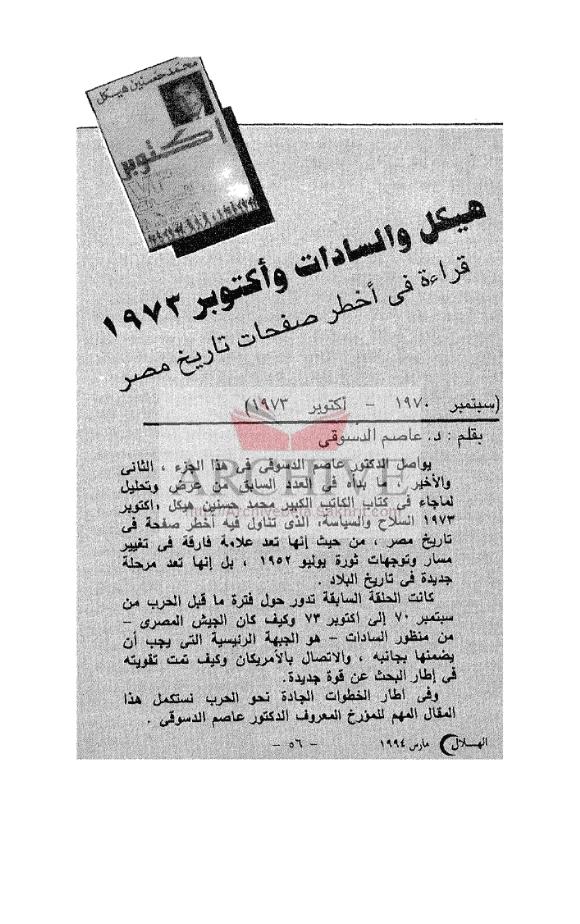 محمد حسنين هيكل
أكتوبر
٧٣
هيكل والسادات وأكتوبر ١٩٧٣
قراءة فى أخطر صفحات تاريخ مصر
(سبتمبر ١٩٧٠ - أكتوبر ١٩٧٣)
بقلم : د. عاصم الدسوقى
يواصل الدكتور عاصم الدسوقى فى هذا الجزء ، الثانى
والأخير ، ما بدأه فى العدد السابق من عرض وتحليل
لماجاء فى كتاب الكاتب الكبير محمد حسنين هيكل «أكتوبر
١٩٧٣ السلاح والسياسة، الذى تناول فيه أخطر صفحة فى
تاريخ مصر ، من حيث إنها تعد علامة فارقة فى تغيير
مسار وتوجهات ثورة يوليو ١٩٥٢ ، بل إنها تعد مرحلة
جديدة فى تاريخ البلاد .
كانت الحلقة السابقة تدور حول فترة ما قبل الحرب من
سبتمبر ٧٠ إلى أكتوبر ٧٣ وكيف كان الجيش المصرى -
من منظور السادات - هو الجبهة الرئيسية التى يجب أن
يضمنها بجانبه ، والاتصال بالأمريكان وكيف تمت تقويته
فى إطار البحث عن قوة جديدة.
وفى اطار الخطوات الجادة نحو الحرب نستكمل هذا
المقال المهم للمؤرخ المعروف الدكتور عاصم الدسوقى .
الهلال مارس ١٩٩٤
- ٥٦ -
ARCHIVE